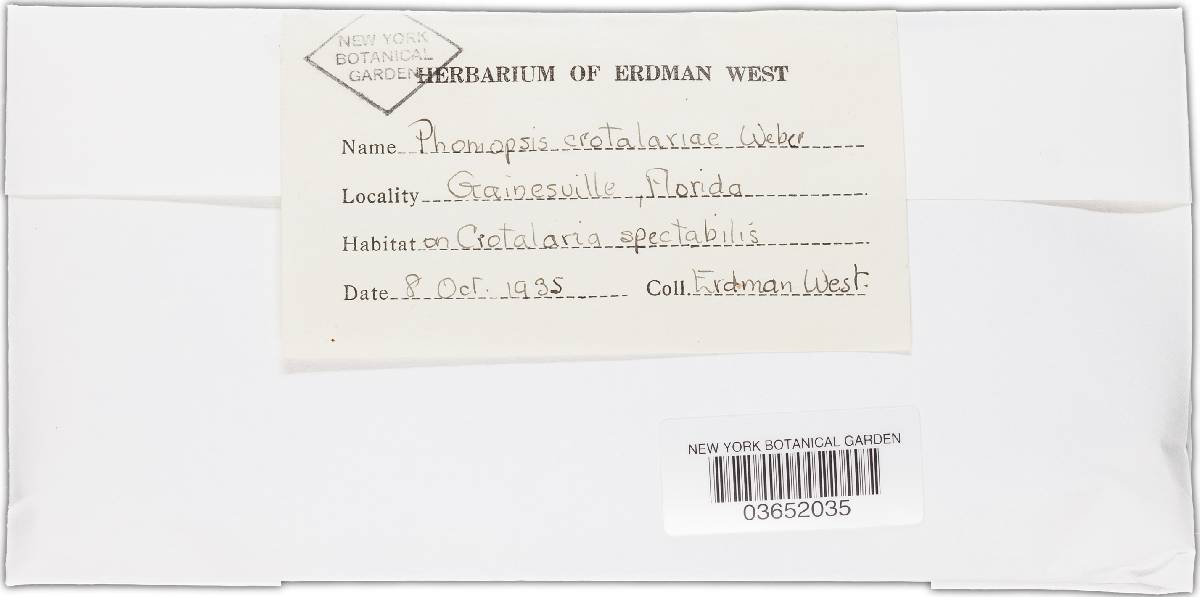 NEW YORK
BOTANICAL
GARDEN
HERBARIUM OF ERDMAN WEST
Name Phomopsis crotalariae Weber
Locality Gainesville, Florida
Habitat on Crotalaria spectabilis
Date 8 Oct. 1935 Coll. Erdman West.
NEW YORK BOTANICAL GARDEN
03652035